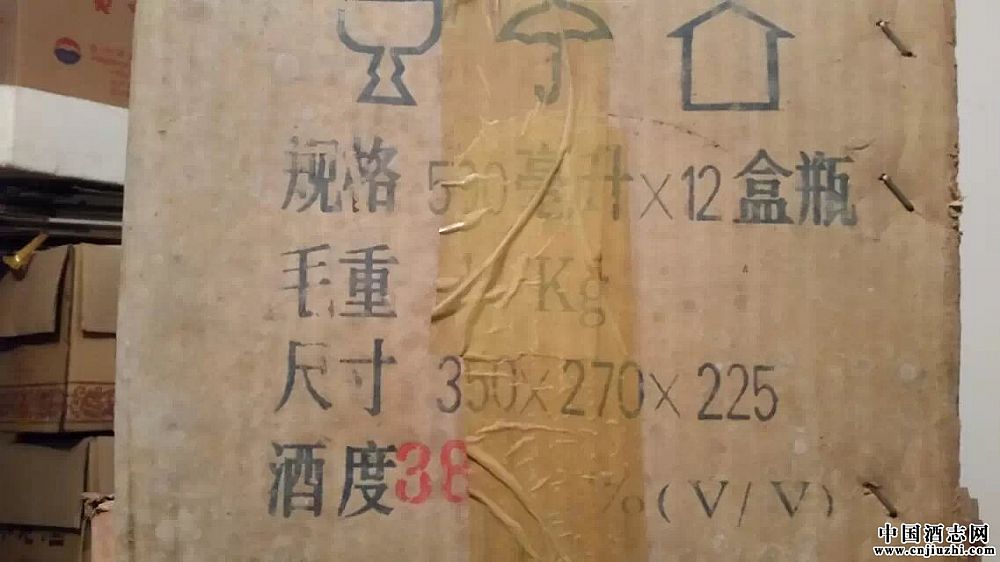 规格 500毫升×12盒瓶
毛重 Kg
尺寸 350×270×225
酒度38 %(V/V)
中国酒志网
www.cnjiuzhi.com